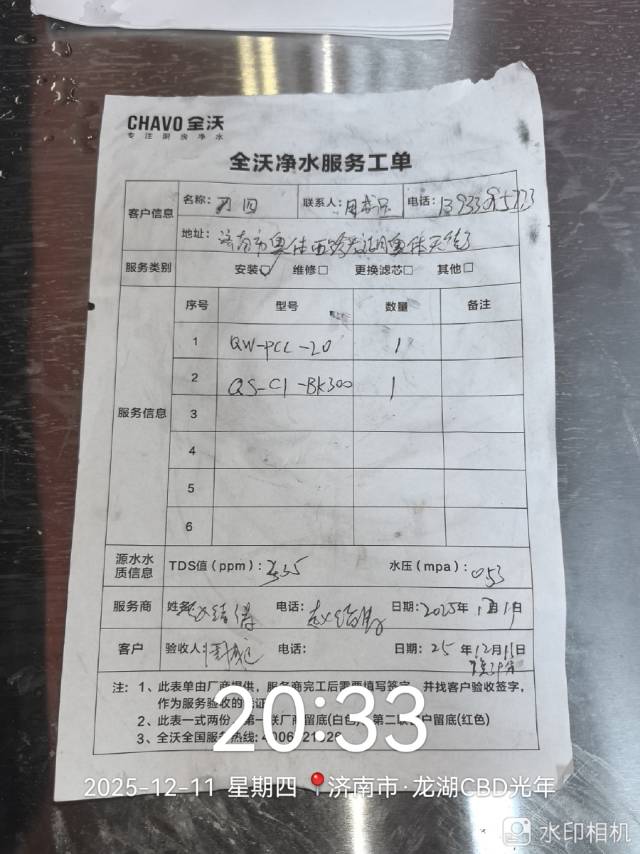 CHAVO 全沃
专注厨房净水
全沃净水服务工单
客户信息
名称：
联系人：
电话：
地址：济南市奥体西路
服务类别 安装☑ 维修□ 更换滤芯□ 其他□
服务信息
序号 型号 数量 备注
1 QW-PCL-20 1
2 QS-C1-BK300 1
3
4
5
6
源水水质信息 TDS值（ppm）： 水压（mpa）：053
服务商 姓名 电话： 日期：2025年12月11日
客户 验收人： 电话： 日期：25年12月11日
注：1、此表单由厂商提供，服务商完工后需要填写签字，并找客户验收签字，
作为服务验收的凭证
2、此表一式两份，第一联厂商留底(白色)，第二联客户留底(红色)
3、全沃全国服务热线：
20:33
2025-12-11 星期四 济南市·龙湖CBD光年
水印相机